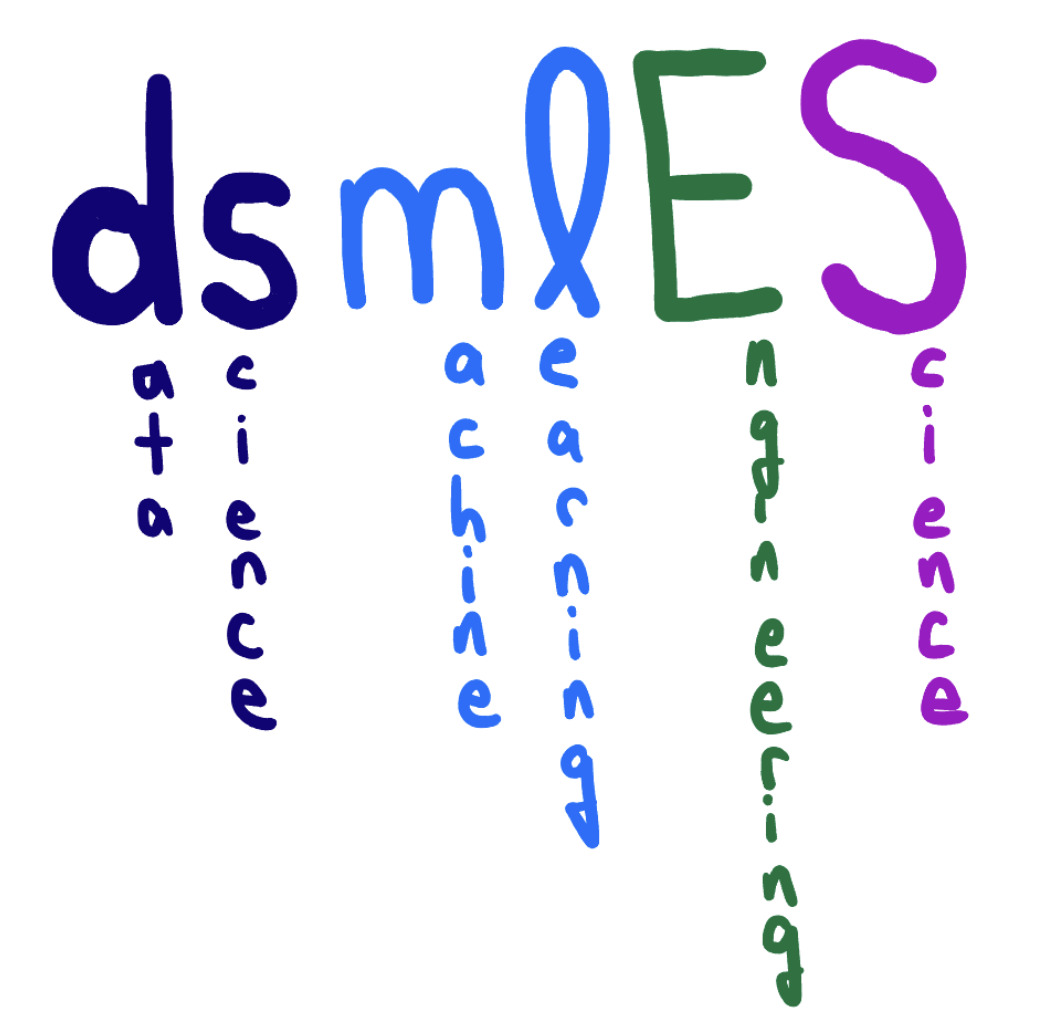 dsmlES
ata
cience
achine
earning
ngineering
cience